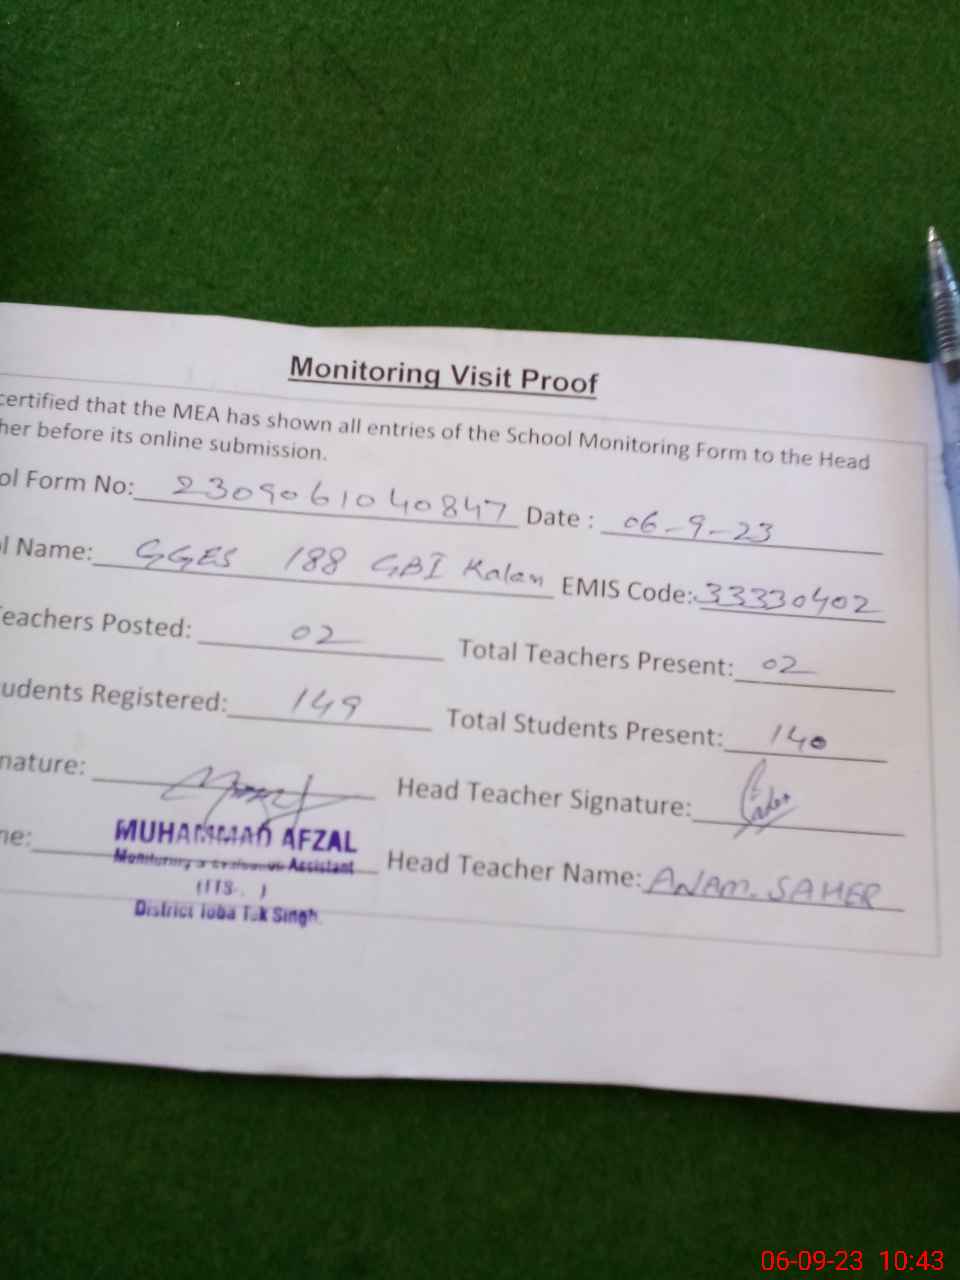 Monitoring Visit Proof
certified that the MEA has shown all entries of the School Monitoring Form to the Head
her before its online submission.
ol Form No: 2309061040847 Date : 06-9-23
l Name: GGES 188 GBI Kalan EMIS Code: 33330402
eachers Posted: 02 Total Teachers Present: 02
udents Registered: 149 Total Students Present: 140
nature: Head Teacher Signature:
me: MUHAMMAD AFZAL Head Teacher Name: ANAM. SAHER
Monitoring & Evaluation Assistant
District Toba Tek Singh.
06-09-23 10:43